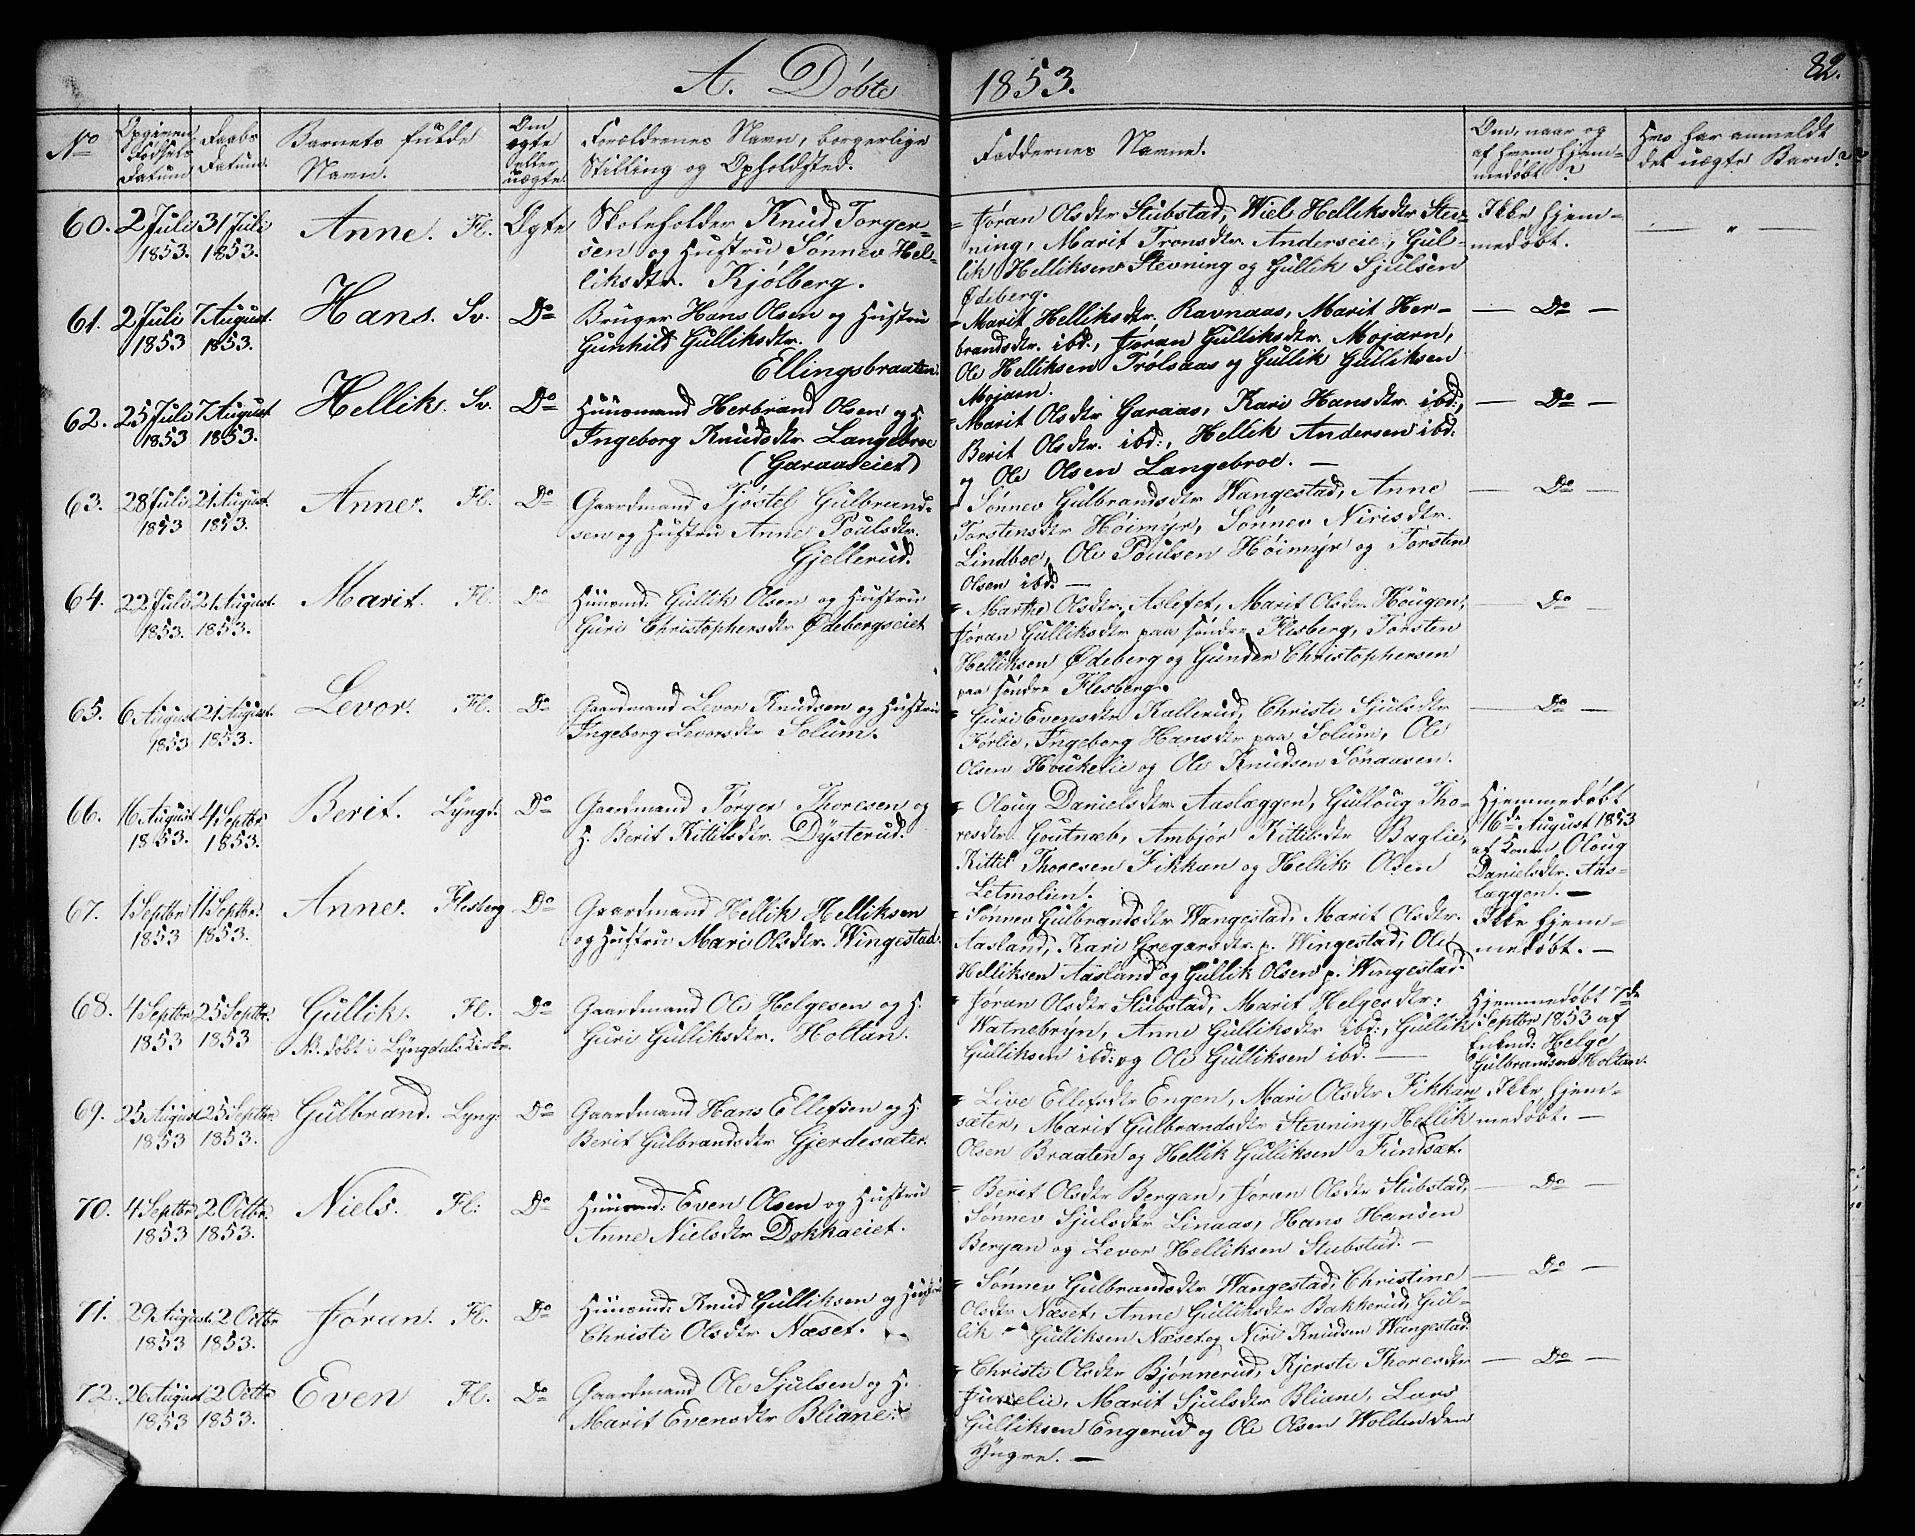 A. Døbte 1853. 82.
No
Opgiven Fødsels Datum
Daabs Datum.
Barnets fulde Navn.
Om ægte eller uægte.
Forældrenes Navn, borgerlige Stilling og Opholdsted.
Faddernes Navne.
Om, naar og af hvem hjemmedøbt?
Hvo har anmeldt det uægte Barn?
60. 2 Juli 31 Juli Anne. Fl. Ægte Skoleholder Knud Torger-
1853. 1853. sen og Hustru Sønnev Hel-
liksdtr. Kjølberg.
Jøran Olsdtr Stubstad, Wiel Helliksdtr Stev-
ning, Marit Tronsdtr. Anderseie, Gul-
lik Helliksen Stevning og Gullik Sjulsen
Ødeberg.
Ikke hjem-
medøbt.
— " —
61. 2 Juli 7 August. Hans. Sv. Do Bruger Hans Olsen og Hustru
1853 1853. Gunhild Gulliksdtr.
Ellingsbraaten.
Marit Helliksdtr. Ravnaas, Marit Her-
brandsdtr. ibd., Jøran Gulliksdtr. Mojarn,
Ole Helliksen Trølsaas og Gullik Gulliksen
Mojarn.
— Do —
62. 25 Juli 7 August Hellik. Sv. Do Huusmand Herbrand Olsen og H.
1853 1853. Ingeborg Knudsdtr Langebroe
(Garaaseiet)
Marit Olsdtr Garaas, Kari Hansdtr ibd:,
Berit Olsdtr. ibd:, Hellik Andersen ibd:
og Ole Olsen Langebroe. —
— Do —
63. 28 Juli 21 August Anne. Fl. Do Gaardmand Tjøstel Gulbrand-
1853 1853. sen og Hustru Anne Poulsdtr.
Gjellerud.
Sønnev Gulbrandsdtr Wangestad, Anne
Torstensdtr Høimyr, Sønnev Nirisdtr.
Lindboe, Ole Poulsen Høimyr og Torsten
Olsen ibd. —
— Do —
64. 22 Juli 21 August. Marit. Fl. Do Huusmd: Gullik Olsen og Hustru
1853. 1853. Guri Christophersdtr Ødebergseiet
Marthe Olsdtr. Aslefet, Marit Olsdtr. Hougen,
Jøran Gulliksdtr paa søndre Flesberg, Torsten
Helliksen Ødeberg og Gunder Christophersen
paa søndre Flesberg.
— Do —
65. 6 August 21 August. Levor. Fl. Do Gaardmand Levor Knudsen og Hustru
1853 1853. Ingeborg Levorsdtr Solum.
Guri Evensdtr Kallerud, Christi Sjulsdtr
Førlie, Ingeborg Hansdtr paa Solum, Ole
Olsen Houkelie og Ole Knudsen Sønaasen.
— Do —
66. 16 August 4 Septbr Berit. Lyngd. Do Gaardmand Torger Thoresen og
1853. 1853. H. Berit Kittilsdtr. Dysterud.
Oloug Danielsdtr. Aaslæggen, Gulloug Tho-
resdtr. Goutnæb, Ambjør Kittilsdtr Baglie,
Kittil Thoresen Fikkan og Hellik Olsen
Letmolien.
Hjemmedøbt
16de August 1853
af Konen Oloug
Danielsdtr. Aas-
læggen. —
67. 1 Septbr 11 Septbr. Anne. Flesberg Do Gaardmand Hellik Helliksen
1853 1853. og Hustru Mari Olsdtr. Wingestad.
Sønnev Gulbrandsdtr Wangestad, Marit Olsdtr.
Aasland, Kari Gregarsdtr. p. Wingestad, Ole
Helliksen Aasland og Gullik Olsen p. Wingestad.
Ikke hjem-
medøbt. —
68. 4 Septbr 25 Septbr. Gullik. Fl. Do Gaardmand Ole Helgesen og H.
1853 1853 NB. døbt i Lyngdals Kirke. Guri Gulliksdtr. Holtan.
Jøran Olsdtr Stubstad, Marit Helgesdtr:
Watnebryn, Anne Gulliksdtr ibd:, Gullik
Gulliksen ibd: og Ole Gulliksen ibd. —
Hjemmedøbt 7de
Septbr 1853 af
Enkemd: Helge
Gulbrandsen Holtan.
69. 25 August 25 Septbr Gulbrand. Lyng: Do Gaardmand Hans Ellefsen og H.
1853 1853. Berit Gulbrandsdtr Gjerdesæter.
Live Ellefsdtr Engen, Mari Olsdtr Fikkan-
sæter, Marit Gulbrandsdtr Stevning, Hellik
Olsen Braaten og Hellik Gulliksen Fundsæt.
Ikke hjem-
medøbt. —
70. 4 Septbr 2 Octbr. Niels. Fl: Do Huusmd: Even Olsen og Hustru
1853 1853. Anne Nielsdtr Dokkaeiet.
Berit Olsdtr Bergan, Jøran Olsdtr Stubstad,
Sønnev Sjulsdtr Linaas, Hans Hansen
Bergan og Levor Helliksen Stubstad. —
— Do —
71. 29 August 2 Octbr Jørun. Fl. Do Huusmd: Knud Gulliksen og Hustru
1853 1853. Christi Olsdtr Næset.
Sønnev Gulbrandsdtr Wangestad, Christine
Olsdtr Næset, Anne Gulliksdtr Bakkerud, Gul-
lik Gulliksen Næset og Niri Knudsen Wangestad.
— Do —
72. 26 August 2 Octbr Even Fl. Do Gaardmand Ole Sjulsen og H.
1853 1853. Marit Evensdtr Bliane.
Christi Olsdtr Bjønnerud, Kjersti Thoresdtr
Juvelie, Marit Sjulsdtr Bliane, Lars
Gulliksen Engerud og Ole Olsen Wolden den
Yngre. —
— Do —